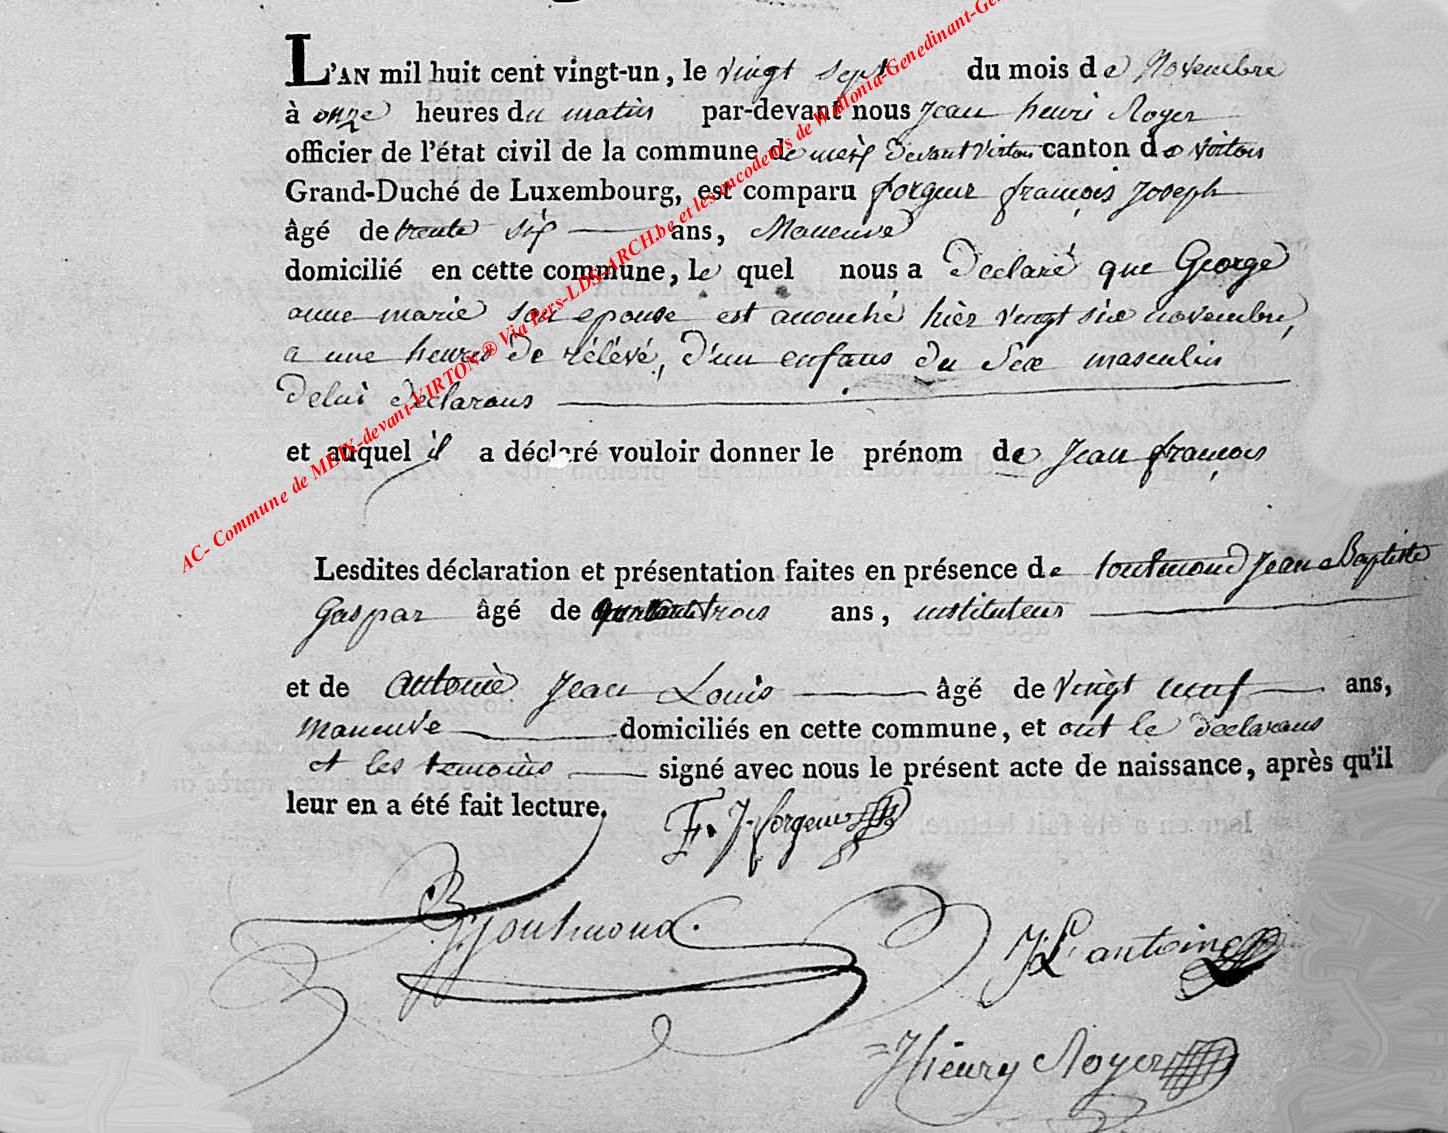 L'AN mil huit cent vingt-un, le vingt sept du mois de Novembre
à onze heures du matin par-devant nous jean henri Royer
officier de l'état civil de la commune de meix devant virton canton de virton
Grand-Duché de Luxembourg, est comparu forgeur françois joseph
âgé de trente six ans, Maneuvre
domicilié en cette commune, le quel nous a Declaré que George
anne marie son epouse est accouché hier vingt six novembre,
a une heures de rélévé, d'un enfans du sexe masculin
Delui declarans
et auquel il a déclaré vouloir donner le prénom de jean françois
Lesdites déclaration et présentation faites en présence de toutmond jean Baptiste
gaspar âgé de trois ans, instituteur
et de antoine jean Louis âgé de vingt neuf ans,
maneuvre domiciliés en cette commune, et ont le declarans
et les temoins signé avec nous le présent acte de naissance, après qu'il
leur en a été fait lecture.
F. J. forgeur
toutmond.
J L antoine
J henry Royer
AC- Commune de MEIX-devant-VIRTON® Via Pers-LDS-ARCH.be et les encodeurs de Wallonia-Genedinant-Ge